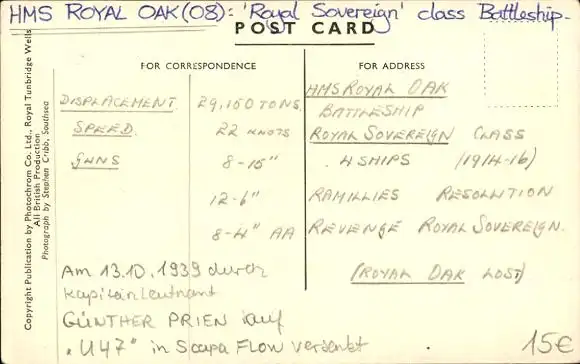 HMS ROYAL OAK (08): 'Royal Sovereign' class Battleship.
POST CARD
FOR CORRESPONDENCE
FOR ADDRESS
DISPLACEMENT 29,150 TONS.
SPEED. 22 KNOTS
GUNS 8-15"
12-6"
8-4" AA
HMS ROYAL OAK
BATTLESHIP
ROYAL SOVEREIGN CLASS
4 SHIPS (1914-16)
RAMILLIES RESOLUTION
REVENGE ROYAL SOVEREIGN.
(ROYAL OAK LOST)
Am 13.10.1939 durch
Kapitänleutnant
GÜNTHER PRIEN auf
"U47" in Scapa FLOW versenkt
15€
Copyright Publication by Photochrom Co. Ltd., Royal Tunbridge Wells
All British Production
Photograph by Stephen Cribb, Southsea